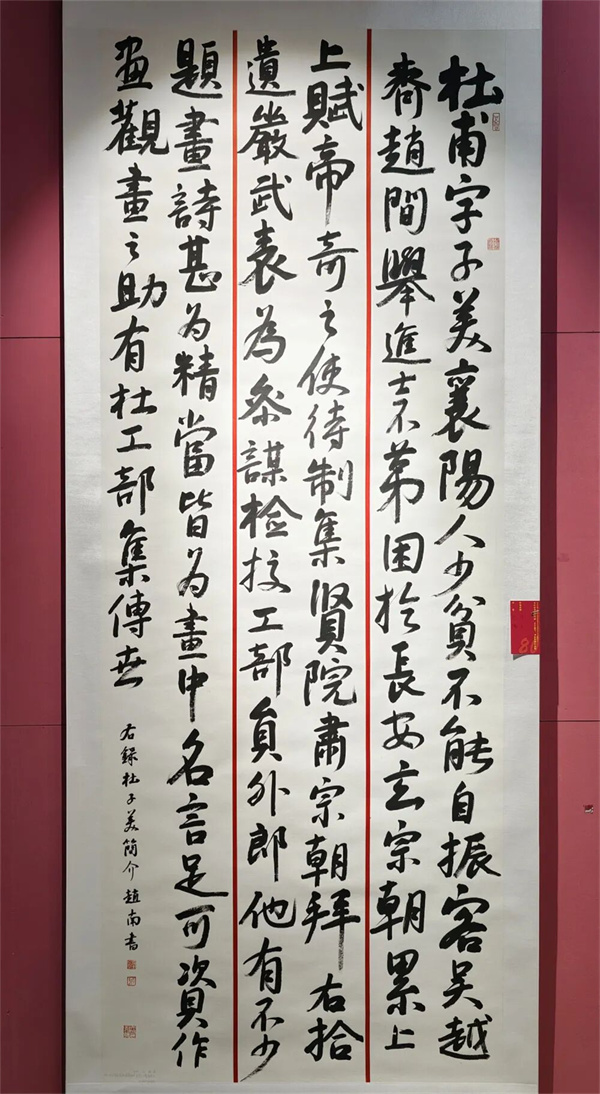 杜甫字子美襄陽人少貧不能自振客吳越
齊趙間舉進士不第困於長安玄宗朝累上
上賦帝奇之使待制集賢院肅宗朝拜右拾
遺嚴武表為参謀檢校工部員外郎他有不少
題畫詩甚為精當皆為畫中名言足可資作
畫觀畫之助有杜工部集傳世
右錄杜子美簡介趙南書